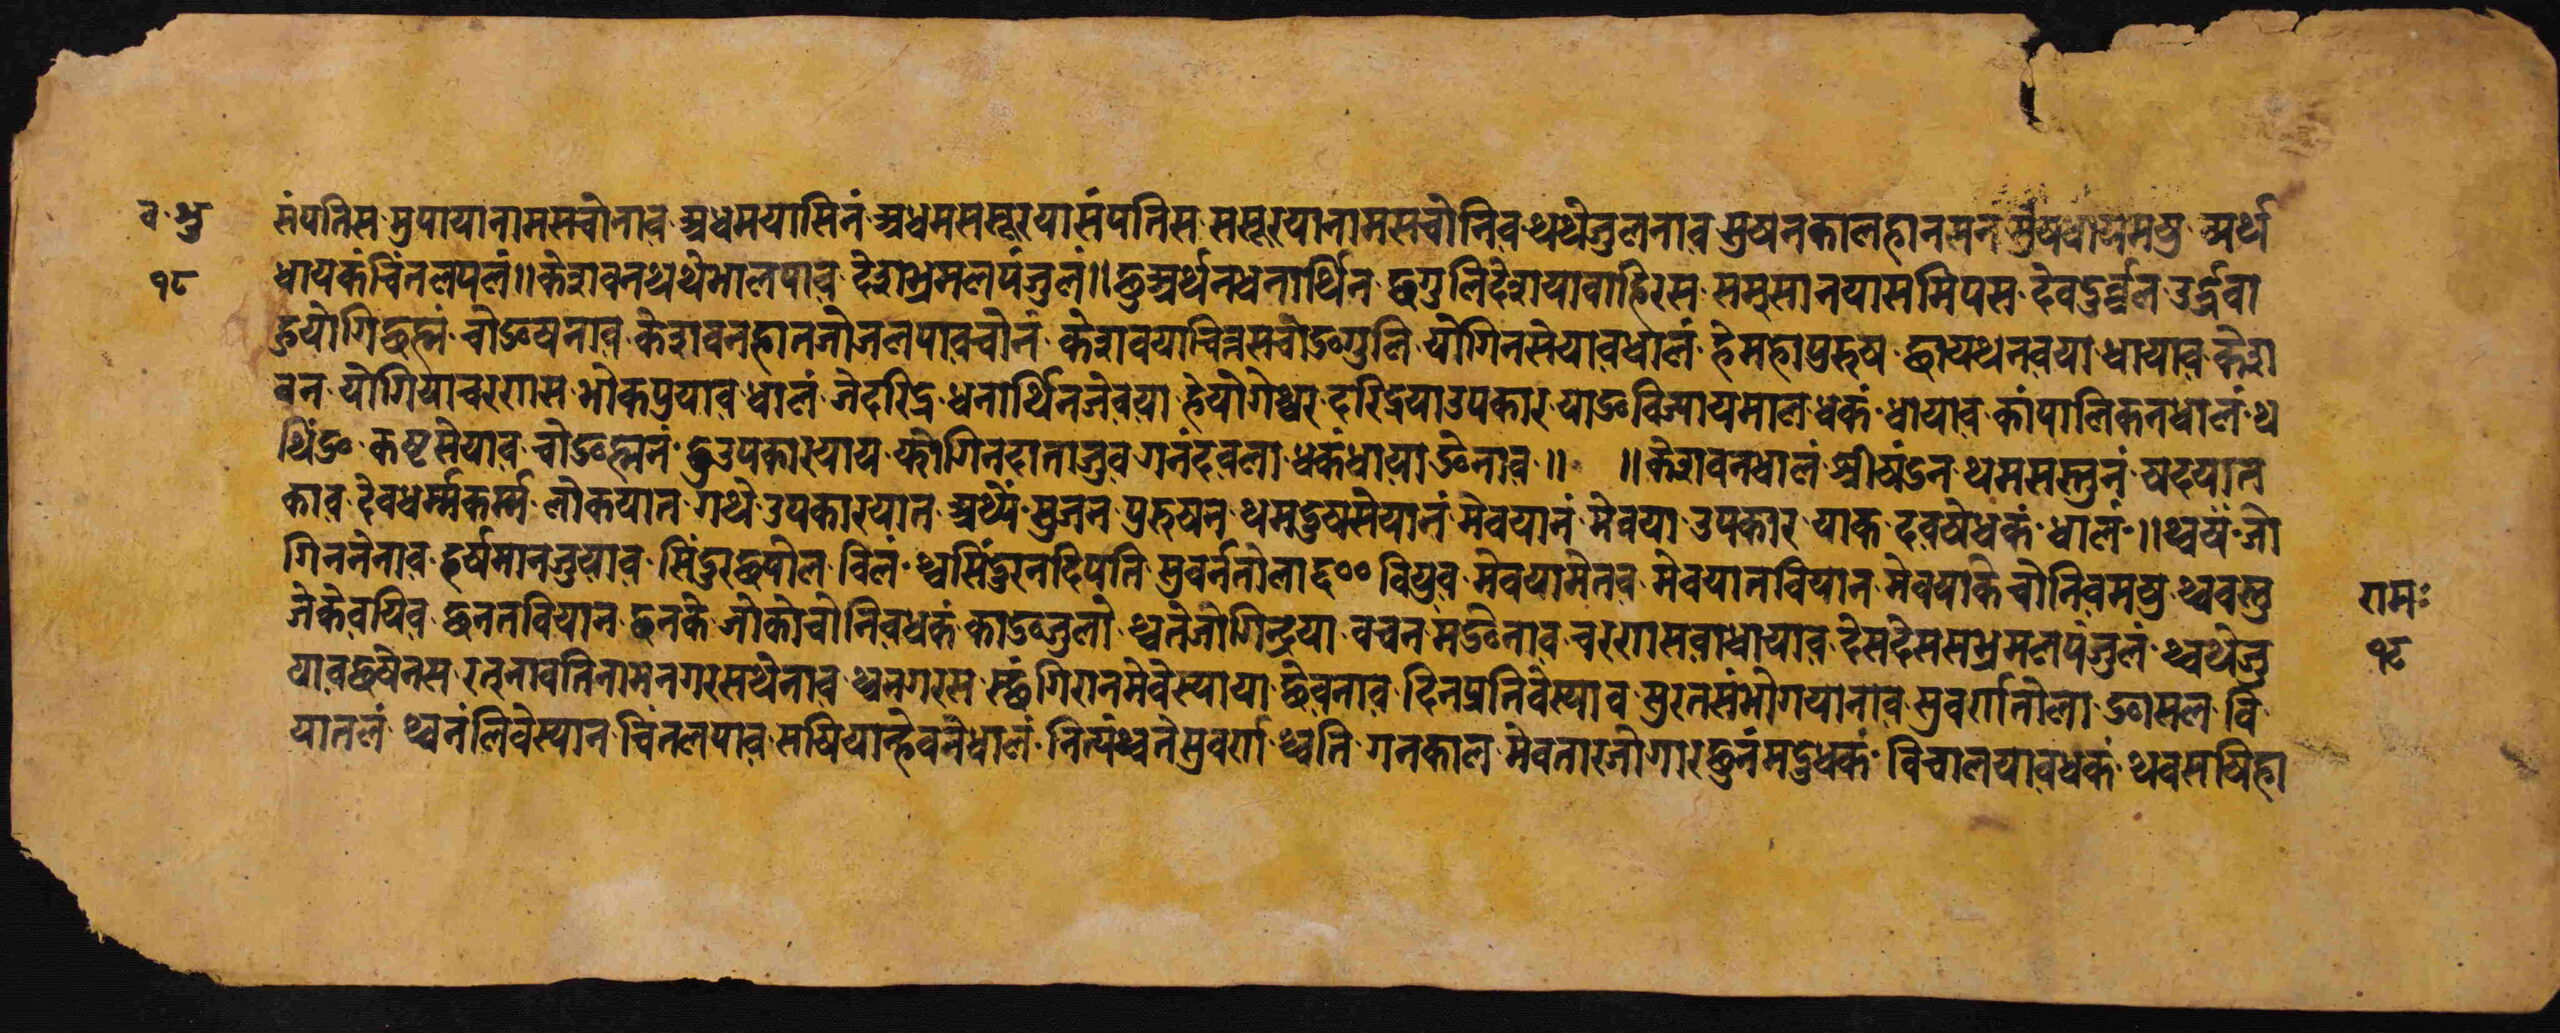 व शु संपतिस मुपायानामसचोनाव अधमयासिनं अधमससूरयासंपतिस ससूरयानामसचोनिव थथेजुलनाव मुषनकालहानमन मुषधायमषु अर्थ
१८ धायकंचिंनलपलं॥ केशवनथथेभालपाव देशभ्रमलपंजुलं॥ छुअर्थनधनार्थिन छगुलिदेशयावाहिरस समुसानयासमिपस देवदुर्ब्बल उर्द्धवा
हुयोगिछह्मं चोङषनाव केशवनहानजोजलपावचोनं केशवयाचित्तसचोङगुलि योगिनसेयावधालं हेमहापुरुष छायथनवया धायाव केश
वन योगियाचरणस भोकपुयाव धालं जेदरिद्र धनार्थिनजेवया हेयोगेश्वर दरिद्रयाउपकार याङविज्यायमाल धकं धायाव कांपालिकनधालं थ
थिंङ कष्टसेयाव चोङह्मनं छुउपकारयाय योगिनदाताजुव गनंदवला धकंधायाङेनाव॥ ॥केशवनधालं श्रीषंडन थमसस्तुनं षदयात
काव देवधर्म्मकर्म्म लोकयात गथे उपकारयात अथ्यें सुजन पुरुषन थमदुषसेयानं मेवयानं मेवया उपकार याक दवषेधकं धालं॥ थ्वयं जो
गिननेनाव हर्षमानजुयाव सिंदुरछपोल विलं थ्वसिंदुरनदिपति सुवर्नतोला ६०० वियुव मेवयामेतव मेवयातवियान मेवयाके चोनिवमषु थ्ववस्तु
जेकेवयिव छनतवियान छनके जोको चोनिवधकं काङजुलो थ्वतेजोगिन्द्रया वचन मङेनाव चरणसवाधायाव देसदेससभ्रमलपंजुलं थ्वथेजु
यावछषेनस रत्नावतिनामनगरसथेनाव थ्वनगरस स्छंगिरानमेवेस्याया छेवनाव दिनप्रतिवेस्याव सुरतसंभोगयानाव सुवर्णतोला ङासल वि
यातलं थ्वनंलिवेस्यान चिंतलपाव सयियान्हेवनेधालं नित्यंथ्वतेसुवर्ण थ्वति गनकाल मेवनारजोगारछुनंमदुधकं विचालयावधकं थवसयिहा
राम
१८